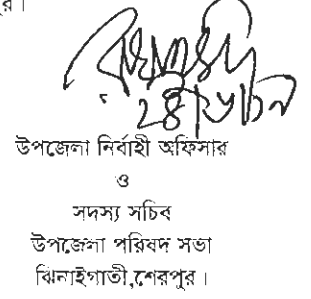 পুর।
উপজেলা নির্বাহী অফিসার
ও
সদস্য সচিব
উপজেলা পরিষদ সভা
ঝিনাইগাতী,শেরপুর।